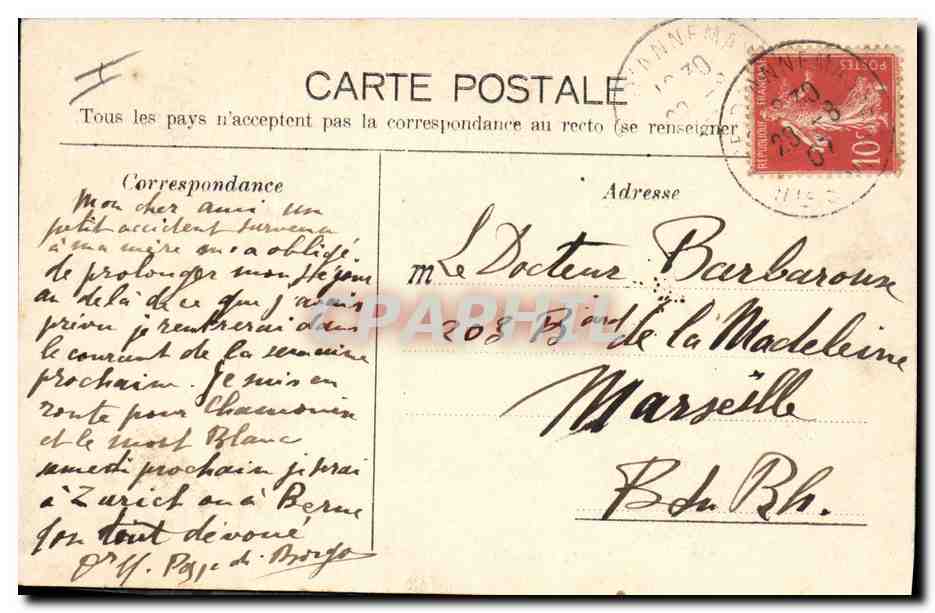 CARTE POSTALE
Tous les pays n'acceptent pas la correspondance au recto (se renseigner
Correspondance
Adresse
Mon cher ami un
petit accident survenu
à ma mère m'a obligé
de prolonger mon séjour
au delà de ce que j'avais
prévu je rentrerai dans
le courant de la semaine
prochaine. Je suis en
route pour Chamonix
et le mont Blanc
samedi prochain je serai
à Zurich ou à Berne
ton tout dévoué
Dr Pozzo di Borgo
M Le Docteur Barbaroux
203 Bard de la Madeleine
Marseille
B du Rh.
REPUBLIQUE FRANCAISE
POSTES
10c
ANNEMA
23 -8
07
CPARHTI